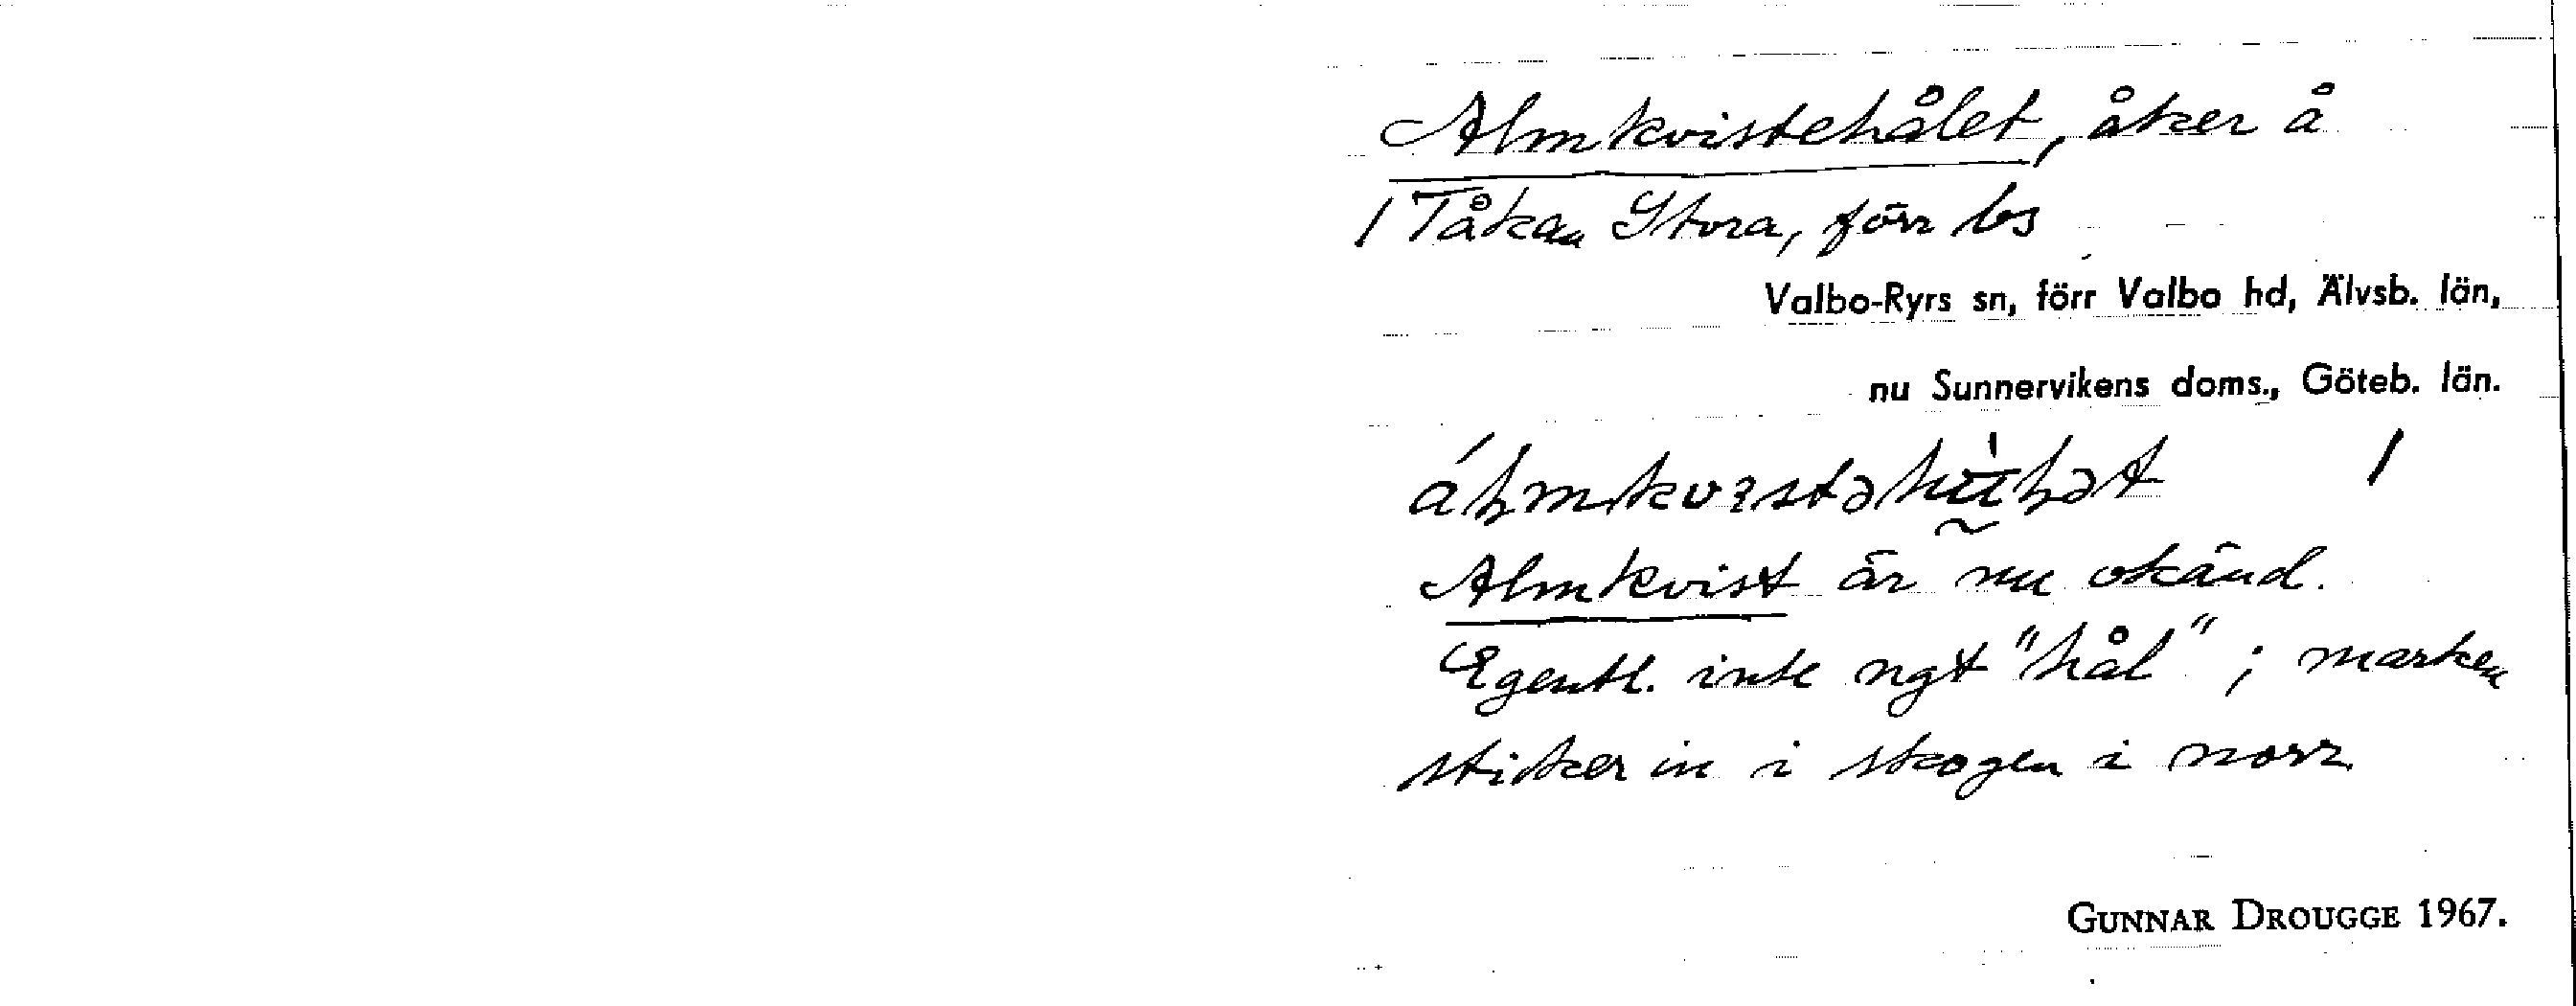 Almkvistehålet, åker å
/ Tåkan Stora, förr bs
Valbo-Ryrs sn, förr Valbo hd, Älvsb. län,
nu Sunnervikens doms., Göteb. län.
/
Almkvist är nu okänd.
Egentl. inte ngt "hål"; marken
sticker in i skogen i norr
GUNNAR DROUGGE 1967.